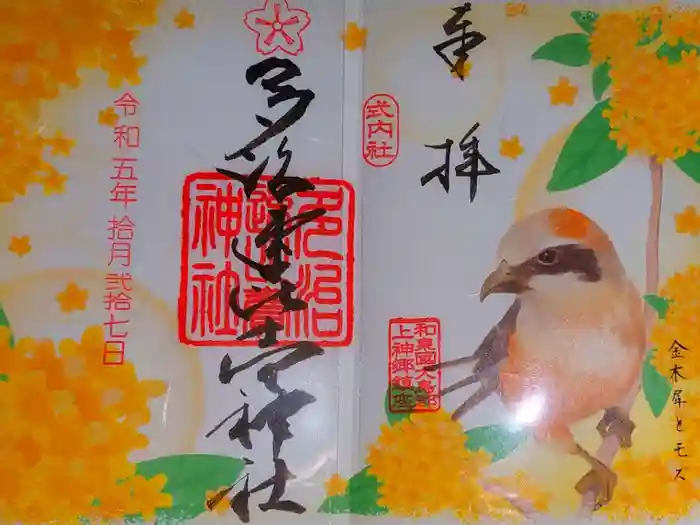 奉拝
式内社
和泉國大鳥郡
上神郷鎮座
金木犀とモズ
多治速比売神社
多治
速比賣
神社
令和五年拾月弐拾七日